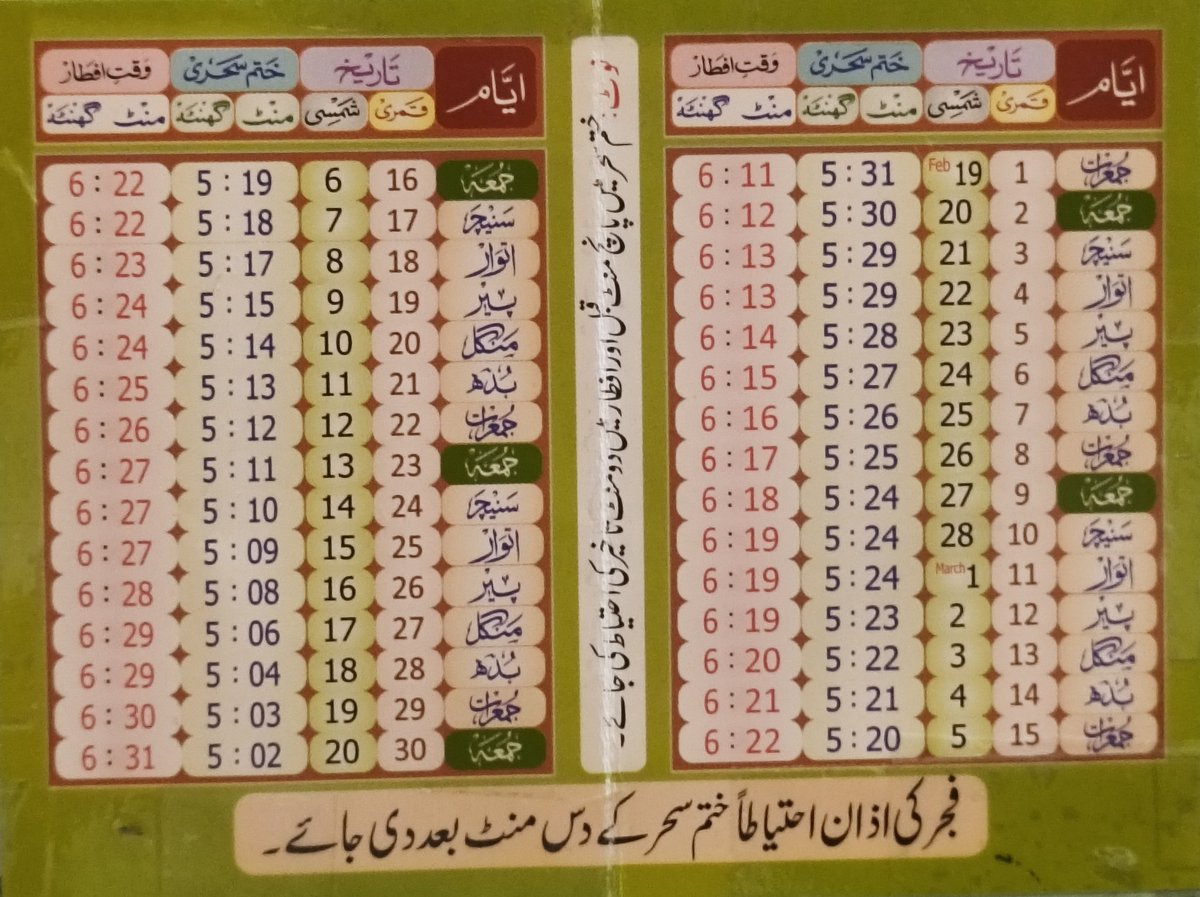 ایّام تاریخ ختم سحری وقتِ افطار
قمری شمسی منٹ گھنٹہ منٹ گھنٹہ
جمعرات 1 Feb 19 5 : 31 6 : 11
جمعہ 2 20 5 : 30 6 : 12
سنیچر 3 21 5 : 29 6 : 13
اتوار 4 22 5 : 29 6 : 13
پیر 5 23 5 : 28 6 : 14
منگل 6 24 5 : 27 6 : 15
بُدھ 7 25 5 : 26 6 : 16
جمعرات 8 26 5 : 25 6 : 17
جمعہ 9 27 5 : 24 6 : 18
سنیچر 10 28 5 : 24 6 : 19
اتوار 11 March 1 5 : 24 6 : 19
پیر 12 2 5 : 23 6 : 19
منگل 13 3 5 : 22 6 : 20
بُدھ 14 4 5 : 21 6 : 21
جمعرات 15 5 5 : 20 6 : 22
نوٹ: ختم سحر میں پانچ منٹ قبل اور افطار میں دو منٹ تاخیر کی احتیاط کی جائے۔
ایّام تاریخ ختم سحری وقتِ افطار
قمری شمسی منٹ گھنٹہ منٹ گھنٹہ
جمعہ 16 6 5 : 19 6 : 22
سنیچر 17 7 5 : 18 6 : 22
اتوار 18 8 5 : 17 6 : 23
پیر 19 9 5 : 15 6 : 24
منگل 20 10 5 : 14 6 : 24
بُدھ 21 11 5 : 13 6 : 25
جمعرات 22 12 5 : 12 6 : 26
جمعہ 23 13 5 : 11 6 : 27
سنیچر 24 14 5 : 10 6 : 27
اتوار 25 15 5 : 09 6 : 27
پیر 26 16 5 : 08 6 : 28
منگل 27 17 5 : 06 6 : 29
بُدھ 28 18 5 : 04 6 : 29
جمعرات 29 19 5 : 03 6 : 30
جمعہ 30 20 5 : 02 6 : 31
فجر کی اذان احتیاطاً ختم سحر کے دس منٹ بعد دی جائے۔